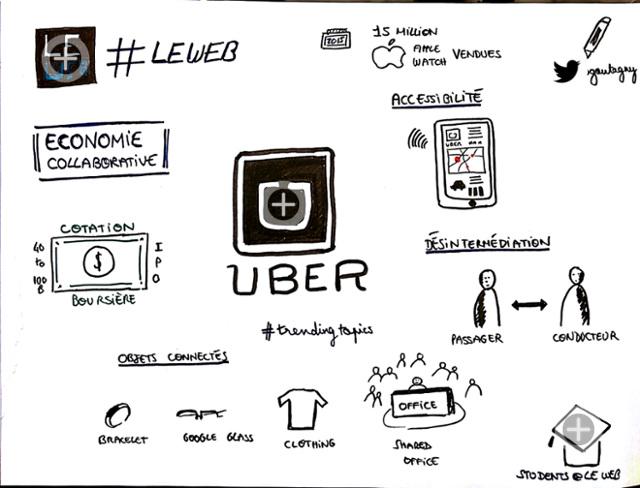 LE
#LEWEB
2015
15 MILLION
APPLE
WATCH VENDUES
igautagny
ACCESSIBILITÉ
ECONOMIE
COLLABORATIVE
UBER
COTATION
40
to
100
B
$
I
P
O
BOURSIÈRE
UBER
DÉSINTERMÉDIATION
PASSAGER
CONDUCTEUR
#trending topics
OBJETS CONNECTÉS
BRACELET
GOOGLE GLASS
CLOTHING
OFFICE
SHARED
OFFICE
STUDENTS@LE WEB